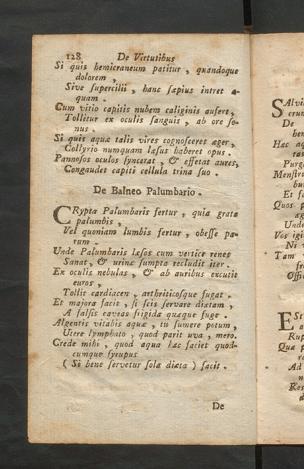 128 De Virtutibus
Si quis hemicraneum patitur, quandoque
dolorem,
Sive supercilii, hanc sæpius intret a-
quam.
Cum vitio capitis nubem caliginis aufert,
Tollitur ex oculis sanguis, ab ore so-
nus.
Si quis aquæ talis vires cognosceret æger,
Collyrio numquam læsus haberet opus.
Pannosos oculos syncerat, & effetat aures,
Congaudet capiti cellula trina suo.
De Balneo Palumbario.
CRypta Palumbaris fertur, quia grata
palumbis,
Vel quoniam lumbis fertur, obesse pa-
rum.
Unde Palumbaris læsos cum vertice renes
Sanat, & urinæ sumpta recludit iter.
Ex oculis nebulas, & ab auribus excutit
euros,
Tollit cardiacen, arthriticosque fugat.
Et majora facit, si scis servare diætam,
A falsis caveas frigidá quæque fuge.
Algentis vitabis aquæ, tu sumere potum,
Utere lymphato, quod parit uva, mero.
Crede mihi, quod aqua hæc faciet quod-
cumque syrupus
(Si bene servetur sola diæta) facit.
De
SAlvi
De
Hac aq
Purg
Menstru
Et f
Quos p
Unde
Vos igi
Ni
Tam
Offic
ESt
Rup
Qua p
Ad